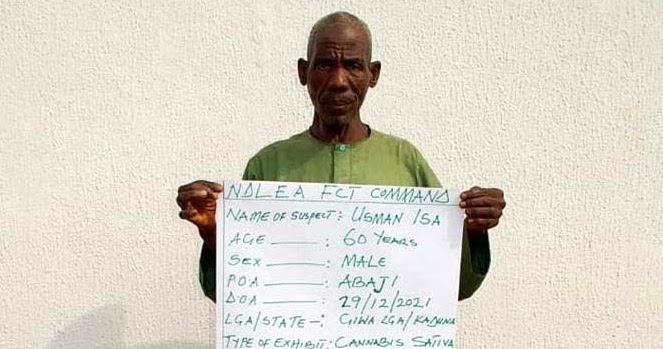 NDLEA FCT COMMAND
NAME OF SUSPECT: USMAN ISA
AGE ———: 60 YEARS
SEX ———: MALE
POA ———: ABAJI
DOA ———: 29/12/2021
LGA/STATE —: GIWA LGA/KADUNA
TYPE OF EXHIBIT: CANNABIS SATIVA